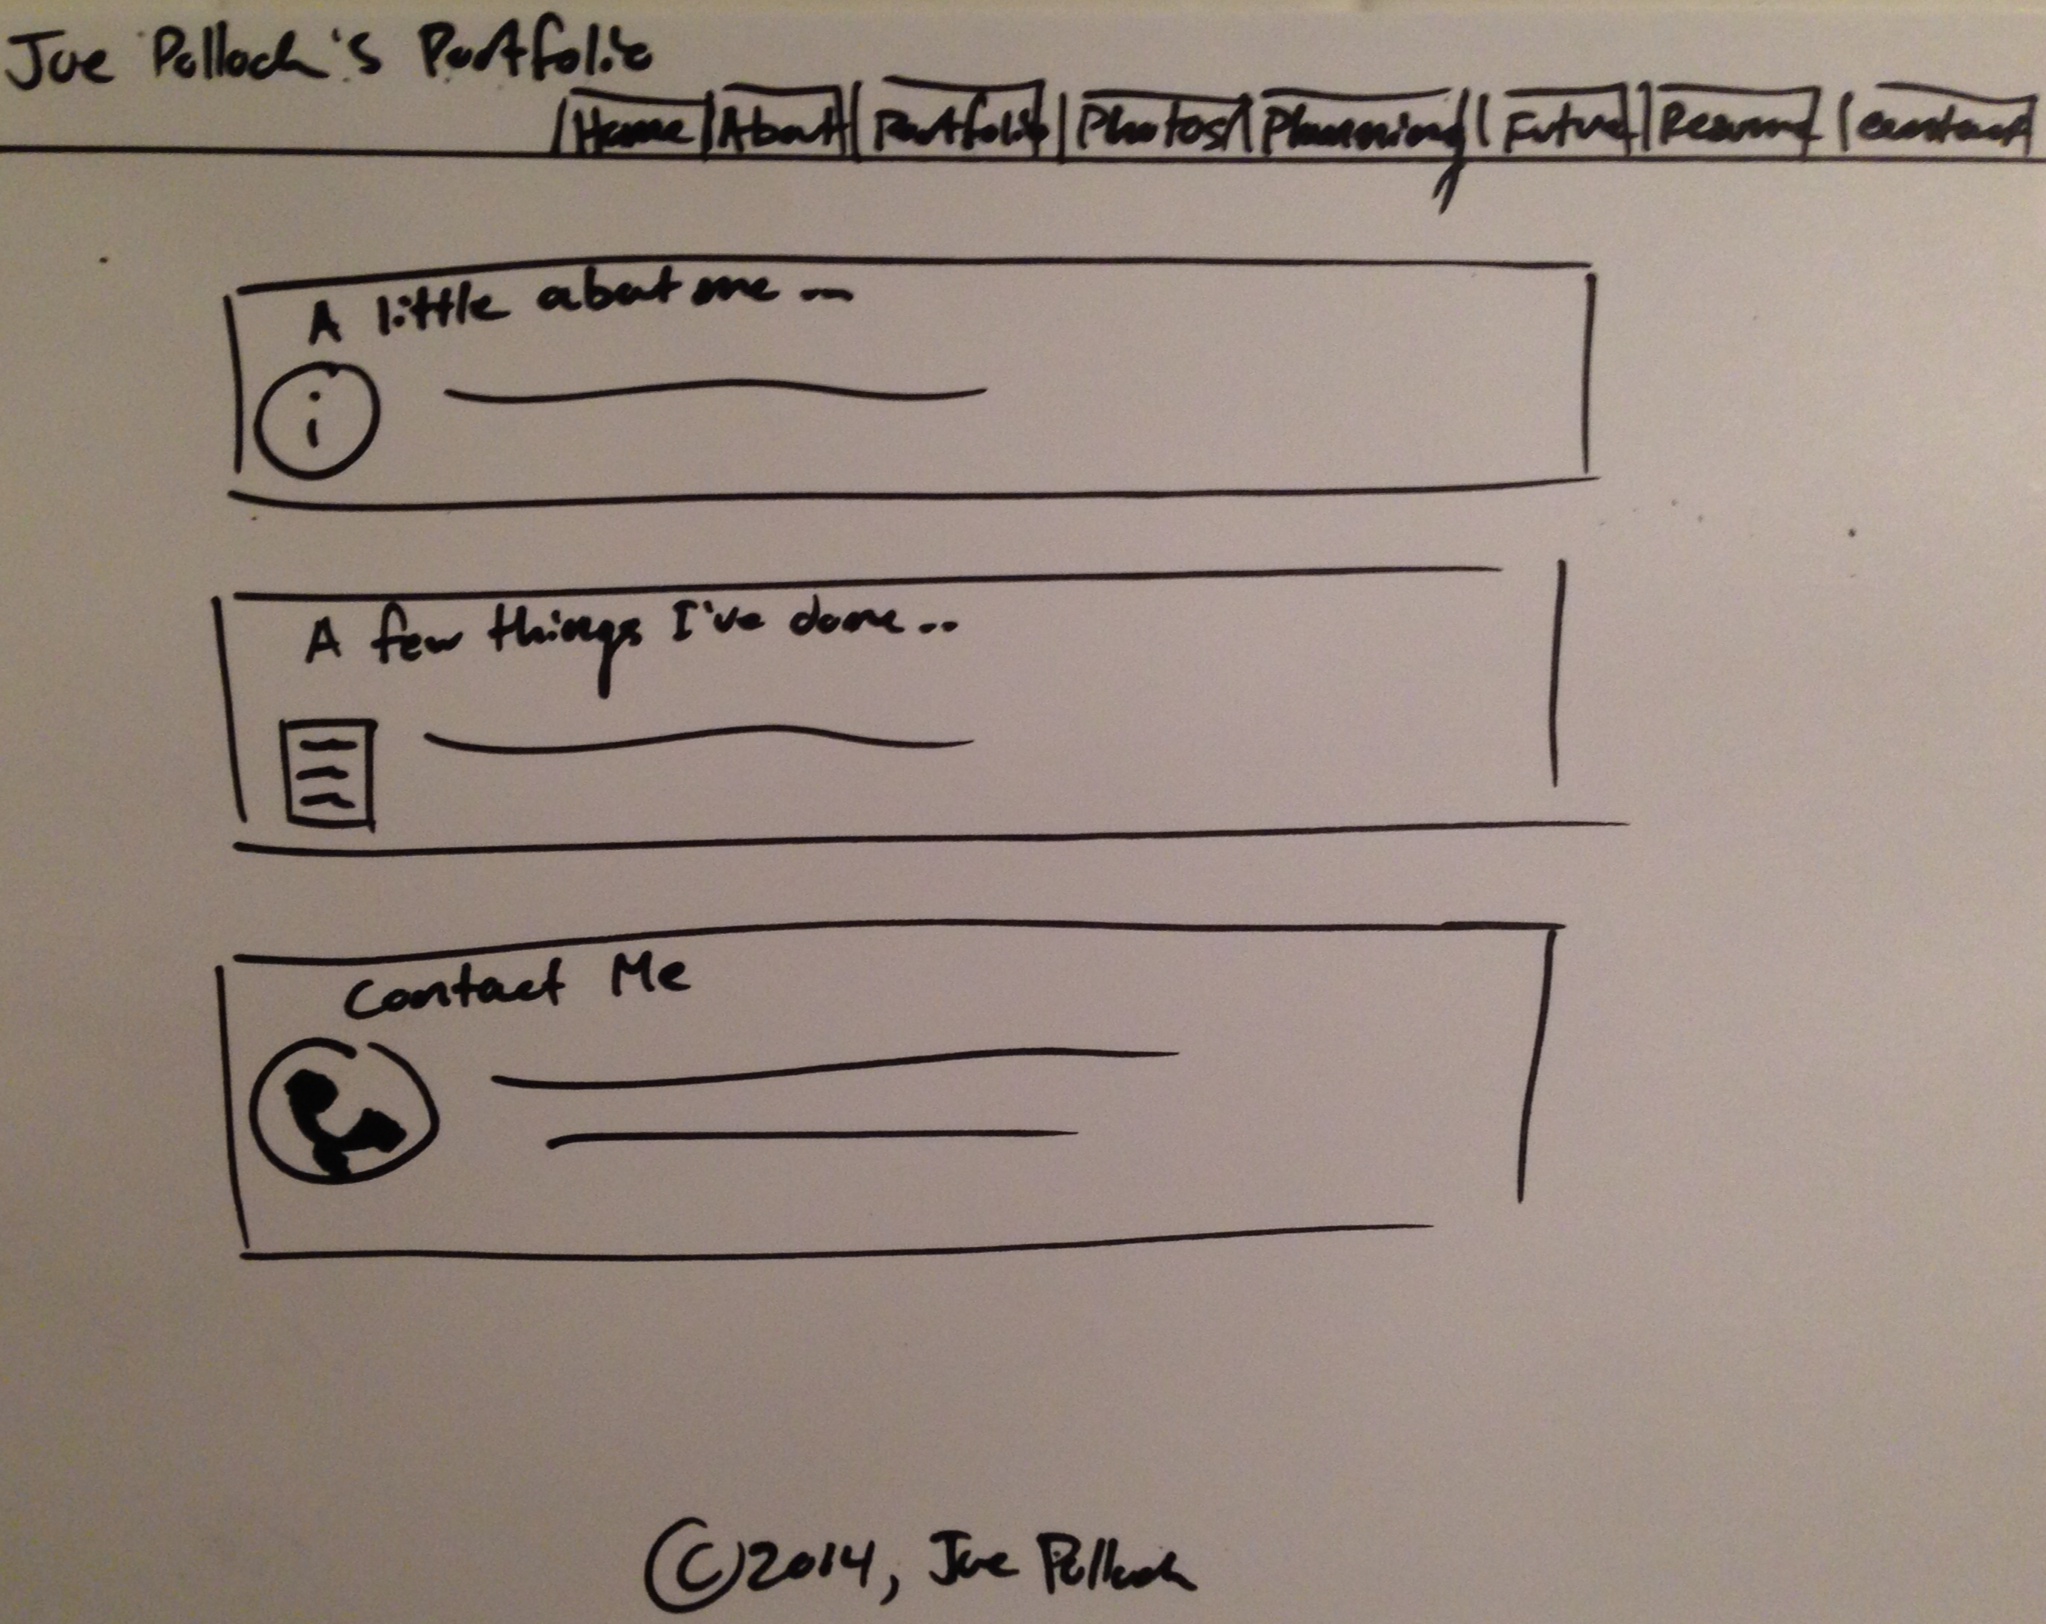 Joe Pollack's Portfolio
Home About Portfolio Photos Planning Future Resume Contact
A little about me...
i
A few things I've done...
Contact Me
©2014, Joe Pollack